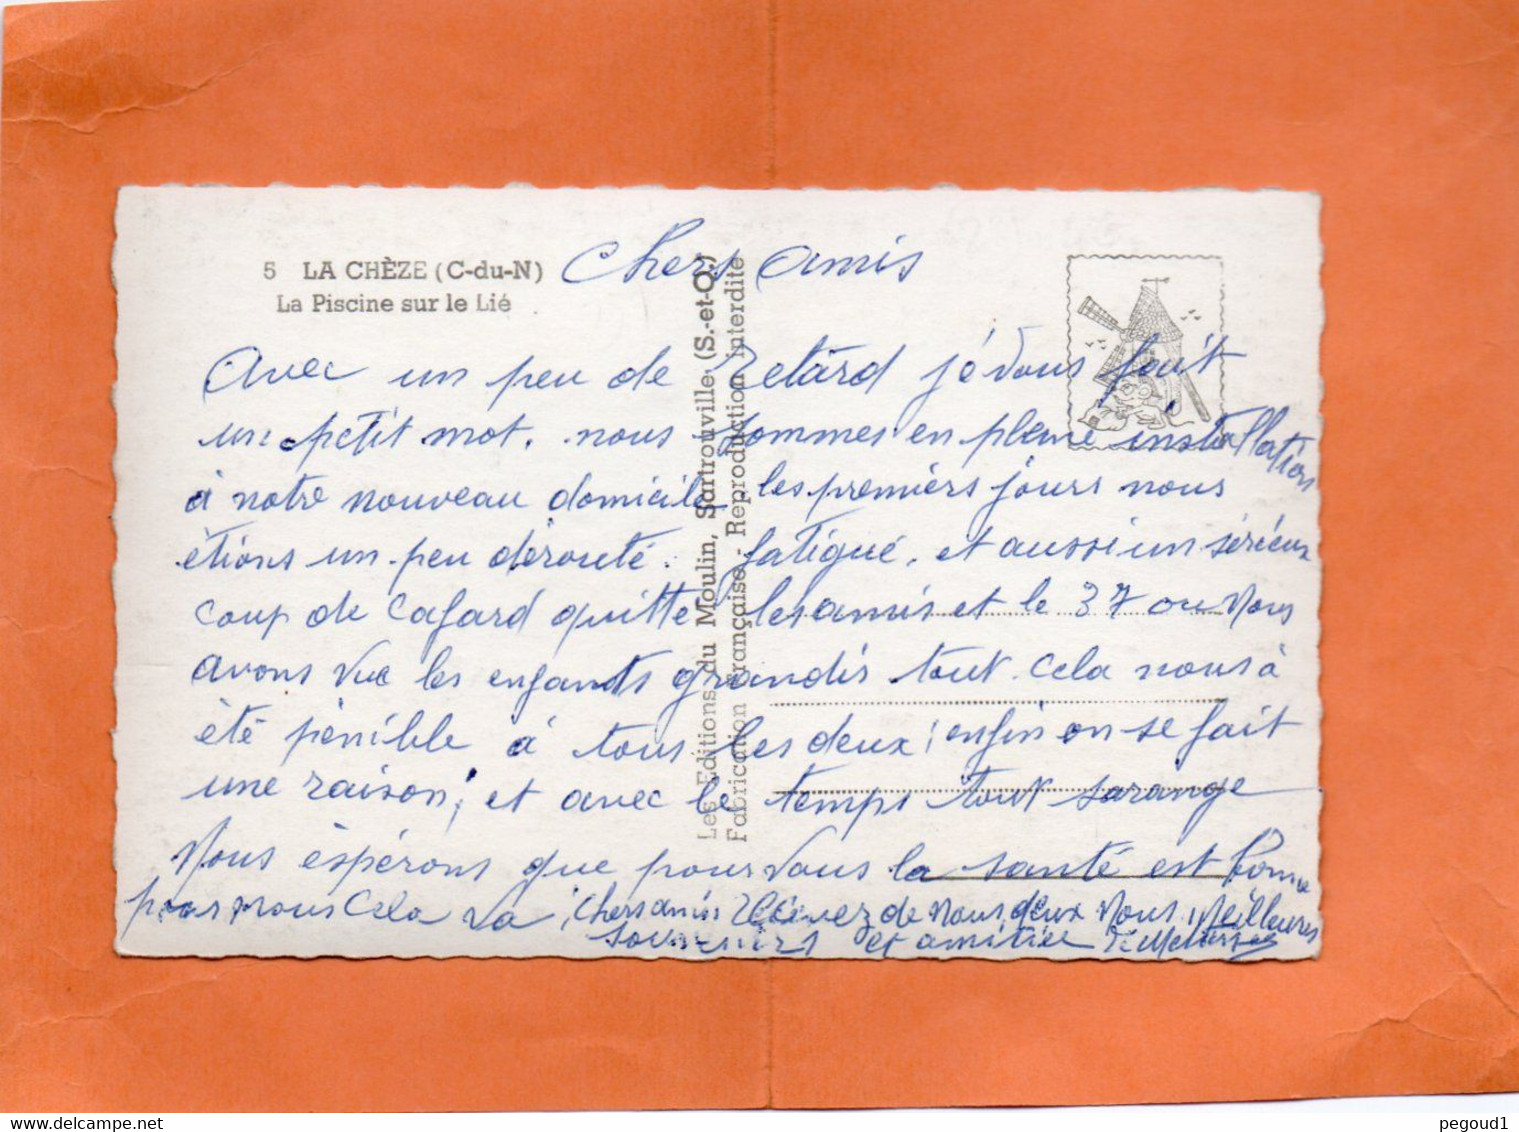 5 LA CHÈZE (C-du-N)
La Piscine sur le Lié
Les Editions du Moulin, Sartrouville (S.-et-O.)
Fabrication Française - Reproduction interdite
Chers amis
Avec un peu de retard je vous fait
un petit mot. nous sommes en pleine installations
à notre nouveau domicile les premièrs jours nous
ètions un peu dérouté. fatigué. et aussi un sérieux
coup de cafard quitte les amis et le 37 ou nous
avons vue les enfants grandis tout cela nous à
été pénible à tous les deux; enfin on se fait
une raison; et avec le temps tout sarange
Nous èspérons que pour vous la santé est bonne
pour nous cela va, Chers amis recevez de nous deux nous Meilleures
souvenirs et amitiée
pegoud1